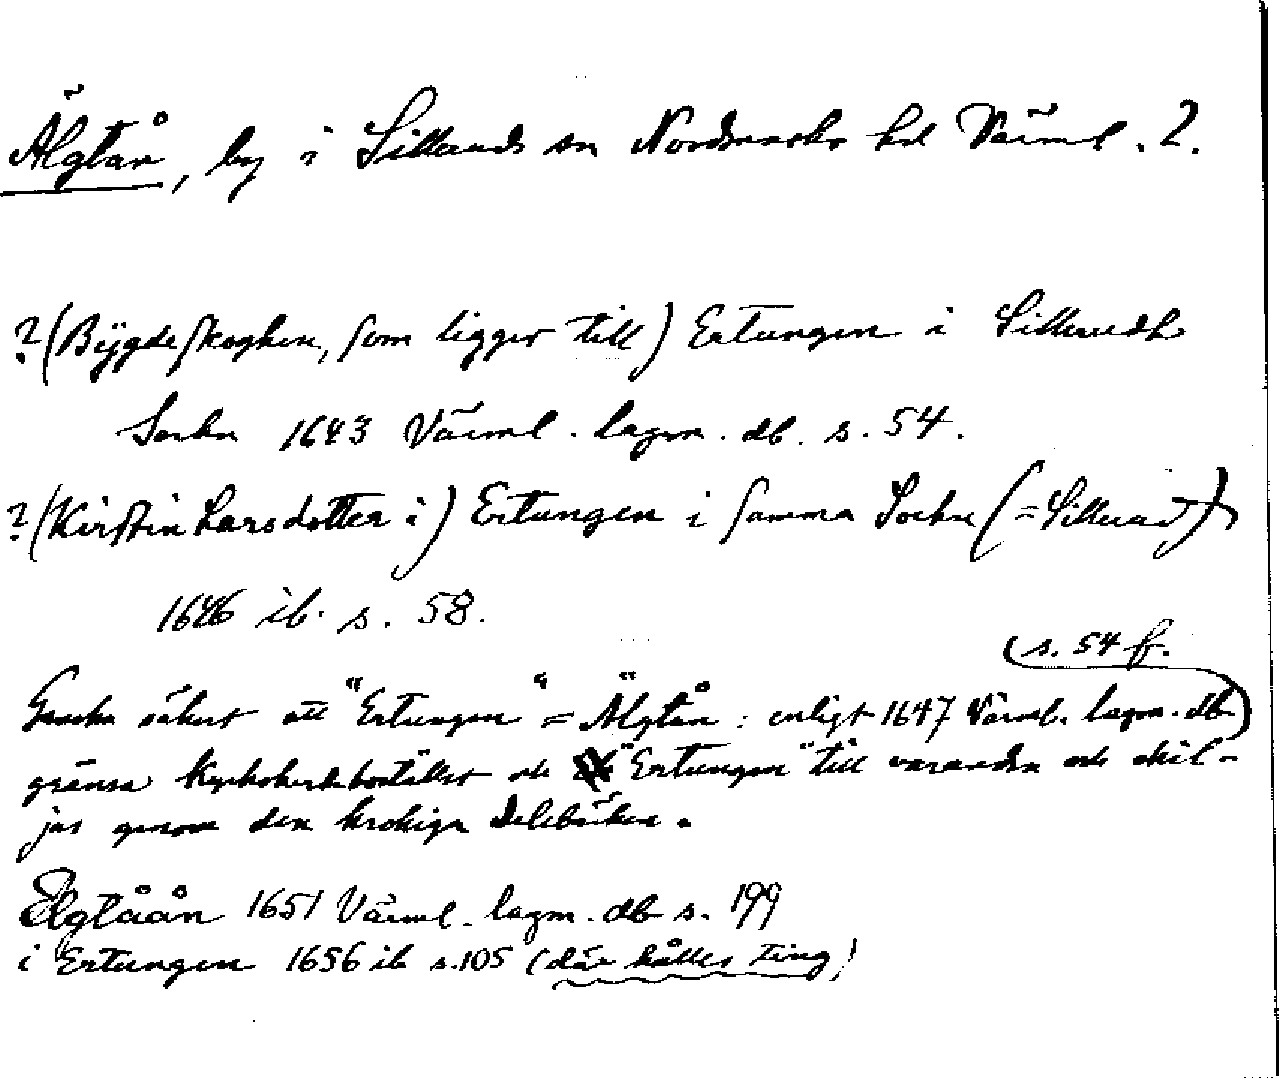 Älgtån, by i Silleruds sn Nordmarks hd Värml. 2.
?(Bÿgdeskoghen, som ligger till) Ertungen i Sillerudh
Sochn 1643 Värml. lagm. db. s. 54.
?(Kirstin Larsdotter i) Ertungen i samma Sochn (=Sillerud)
1646 ib. s. 58.
(s. 54 f.
Ganska säkert att "Ertungen" = Älgtån: enligt 1647 Värml. lagm. db)
gränsa Kyrkoherdebostället och "Ertungen" till varandra och skil-
jas genom den krokiga Delebäcken.
Elgtåån 1651 Värml. lagm. db s. 199
i Ertungen 1656 ib s. 105 (där hålles ting)